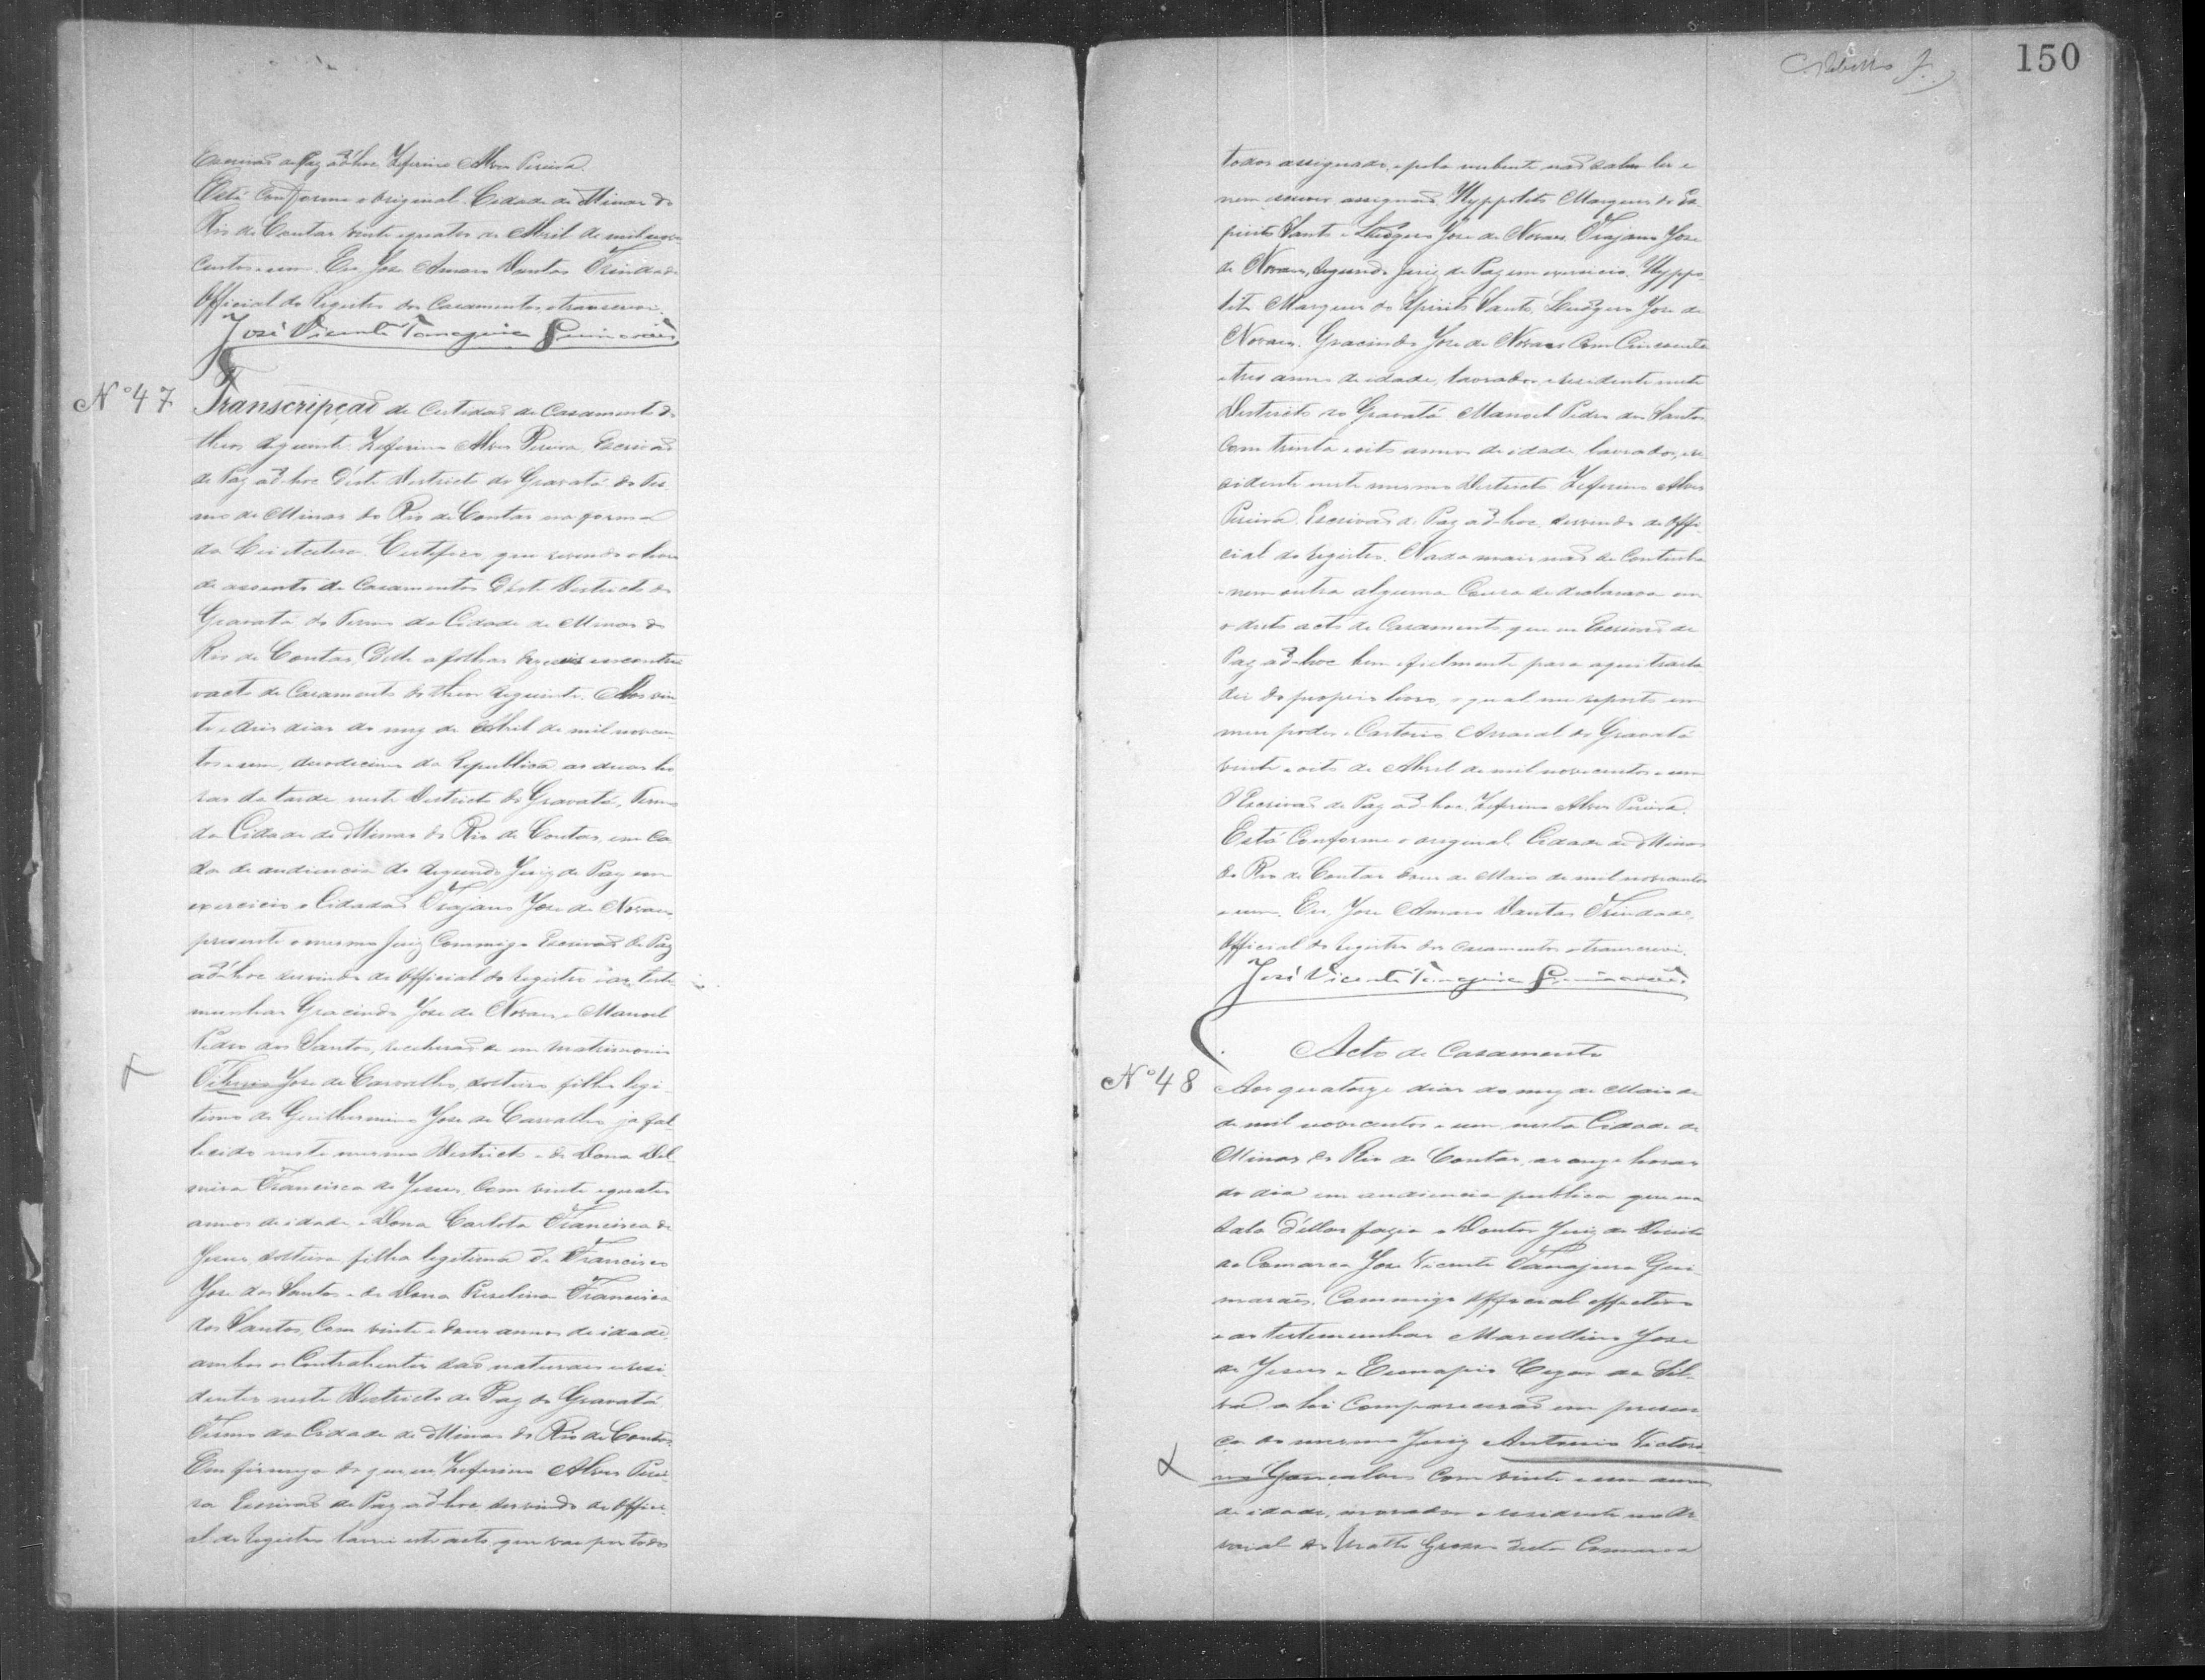 Escrivaõ de Paz ad-hoc Zeferino Alves Pereira.
Está conforme o original. Cidade de Minas do
Rio de Contas vinte e quatro de Abril de mil nove
centos e um. Eu, José Amaro Dantas Trindade
Official do Registro dos Casamentos, o transcrevi.
José Vicente Tanajura Guimarães
Nº 47
Transcripçaõ de Certidaõ de Casamento do
theor seguinte. Zeferino Alves Pereira, Escrivaõ
de Paz ad-hoc d'este Districto do Gravatá, do Ter-
mo de Minas do Rio de Contas na forma
da Lei etcetera. Certifico, que revendo o livro
de assento de Casamentos d'este Districto do
Gravatá, do Termo da Cidade de Minas do
Rio de Contas, d'elle a folhas encontrei
o acto de Casamento do theor seguinte. Aos vin-
te e dois dias do mez de Abril de mil novecen-
tos e um, duodecimo da Republica, as duas ho-
ras da tarde neste Districto do Gravatá, Termo
da Cidade de Minas do Rio de Contas, em Ca-
sa de audiencia do segundo Juiz de Paz em
exercicio o Cidadaõ Trajano José de Novaes
presente o mesmo Juiz Commigo Escrivaõ de Paz
ad-hoc servindo de Official do Registro e as teste-
munhas Gracindo José de Novaes, e Manoel
Pedro dos Santos, receberaõ-se em matrimonio
José de Carvalho, solteiro, filho legi-
timo de Guilhermino José de Carvalho já fal-
lecido neste mesmo Districto e de Dona Del-
mira Francisca de Jesus, com vinte e quatro
annos de idade, e Dona Carlota Francisca de
Jesus, solteira, filha legitima de Francisco
José dos Santos e de Dona Francisca
dos Santos, com vinte e dous annos de idade,
ambos os Contrahentes saõ naturaes e resi-
dentes neste Districto de Paz do Gravatá
Termo da Cidade de Minas do Rio de Contas.
Em firmeza do que eu Zeferino Alves Perei-
ra Escrivaõ de Paz ad-hoc servindo de Offici-
al do Registro lavrei este acto, que vae por todos
150
todos assignado, e pelo nubente naõ saber ler e
nem escrever, assignaõ Hyppolito Marques do Es-
pirito Santo e Ludgero José de Novaes. Trajano José
de Novaes, segundo Juiz de Paz em exercicio. Hyppo-
lito Marques do Espirito Santo, Ludgero José de
Novaes. Gracindo José de Novaes com Cincoenta
e tres annos de idade, lavrador e residente neste
Districto do Gravatá. Manoel Pedro dos Santos
com trinta e oito annos de idade, lavrador, re-
sidente neste mesmo Districto. Zeferino Alves
Pereira, Escrivaõ de Paz ad-hoc, servindo de Offi-
cial do Registro. Nada mais naõ se continha
e nem outra alguma Cousa se declarava em
o dito acto de Casamento, que eu Escrivaõ de
Paz ad-hoc bem e fielmente para aqui trasla-
dei do proprio livro, o qual me reporto em
meu poder e Cartorio. Arraial do Gravatá
vinte e oito de Abril de mil novecentos e um
O Escrivaõ de Paz ad-hoc, Zeferino Alves Pereira.
Está Conforme o original. Cidade de Minas
do Rio de Contas de Maio de mil novecentos
e um. Eu, José Amaro Dantas Trindade,
Official do Registro dos Casamentos o transcrevi.
José Vicente Tanajura Guimarães
Acto de Casamento
Nº 48
Aos quatorze dias do mez de Maio de
de mil novecentos e um nesta Cidade de
Minas do Rio de Contas, as onze horas
do dia em audiencia publica que na
sala d'ellas fazia o Doutor Juiz de Direito
da Comarca José Vicente Tanajura Gui-
marães, Commigo Official effectivo
e as testemunhas Marcellino José
de Jesus e Cezar da Sil-
va a hi Compareceraõ em presen-
ça do mesmo Juiz Antonio Victori-
no Gonçalves com vinte e um annos
de idade, morador e residente no Ar-
raial do Matto Grosso desta Comarca